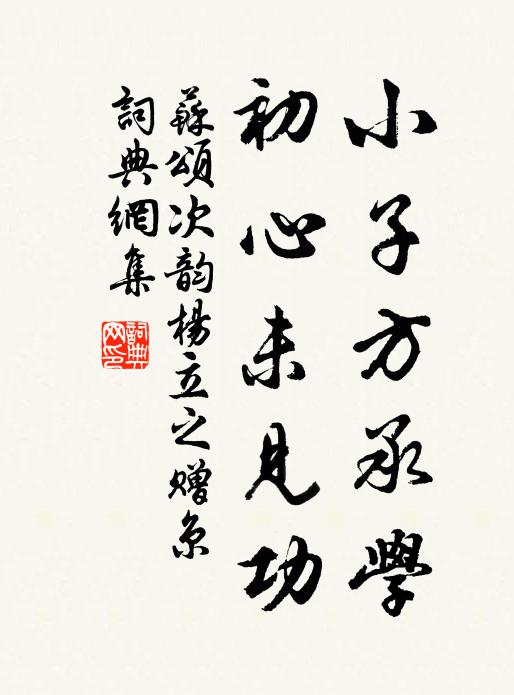 小子方承學
初心未見功
蘇頌次韵楊立之贈京
詞典網集
詞典網印